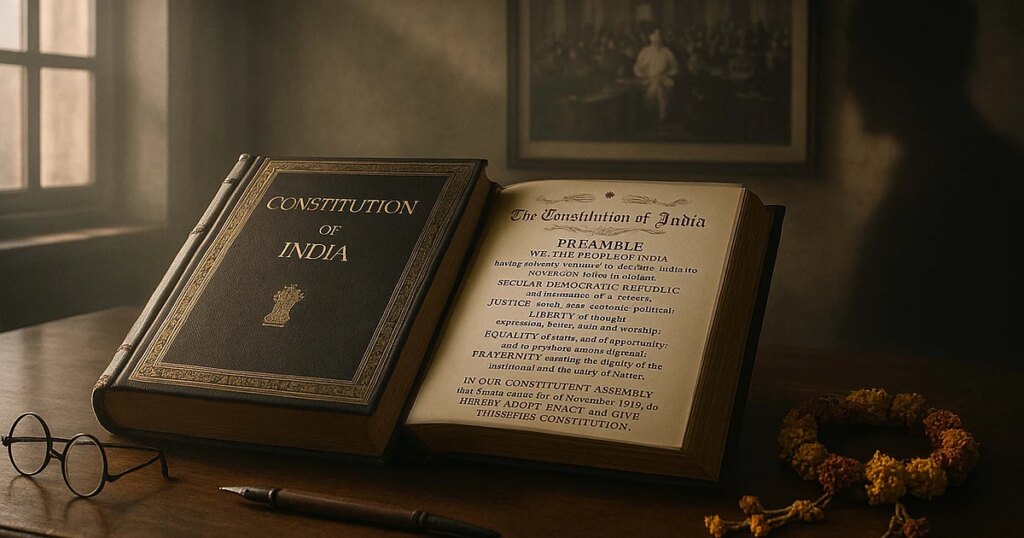 CONSTITUTION
OF
INDIA
The Constitution of India
PREAMBLE
WE, THE PEOPLE OF INDIA
having solventy venuure' to decratie india ito
NOVERGON lolice in olotant.
SECULAR DEMOCRATIC REFUDLIC
and intimance of a reteers,
JUSTICE soteh, seas ecotonic political:
LIBERTY of thought
expression, beiter, auin and worship:
EQUALITY of statts, and of opportunity:
and to pryshore amons digrenal:
FRAYERNITY earating the dignity of the
institional and the uairy of Natter.
IN OUR CONSTITUENT ASSEMBLY
that 5mata cause for of November 1919, do
HEREBY ADOPT ENACT and GIVE
THISSEFIES CONSTITUTION.